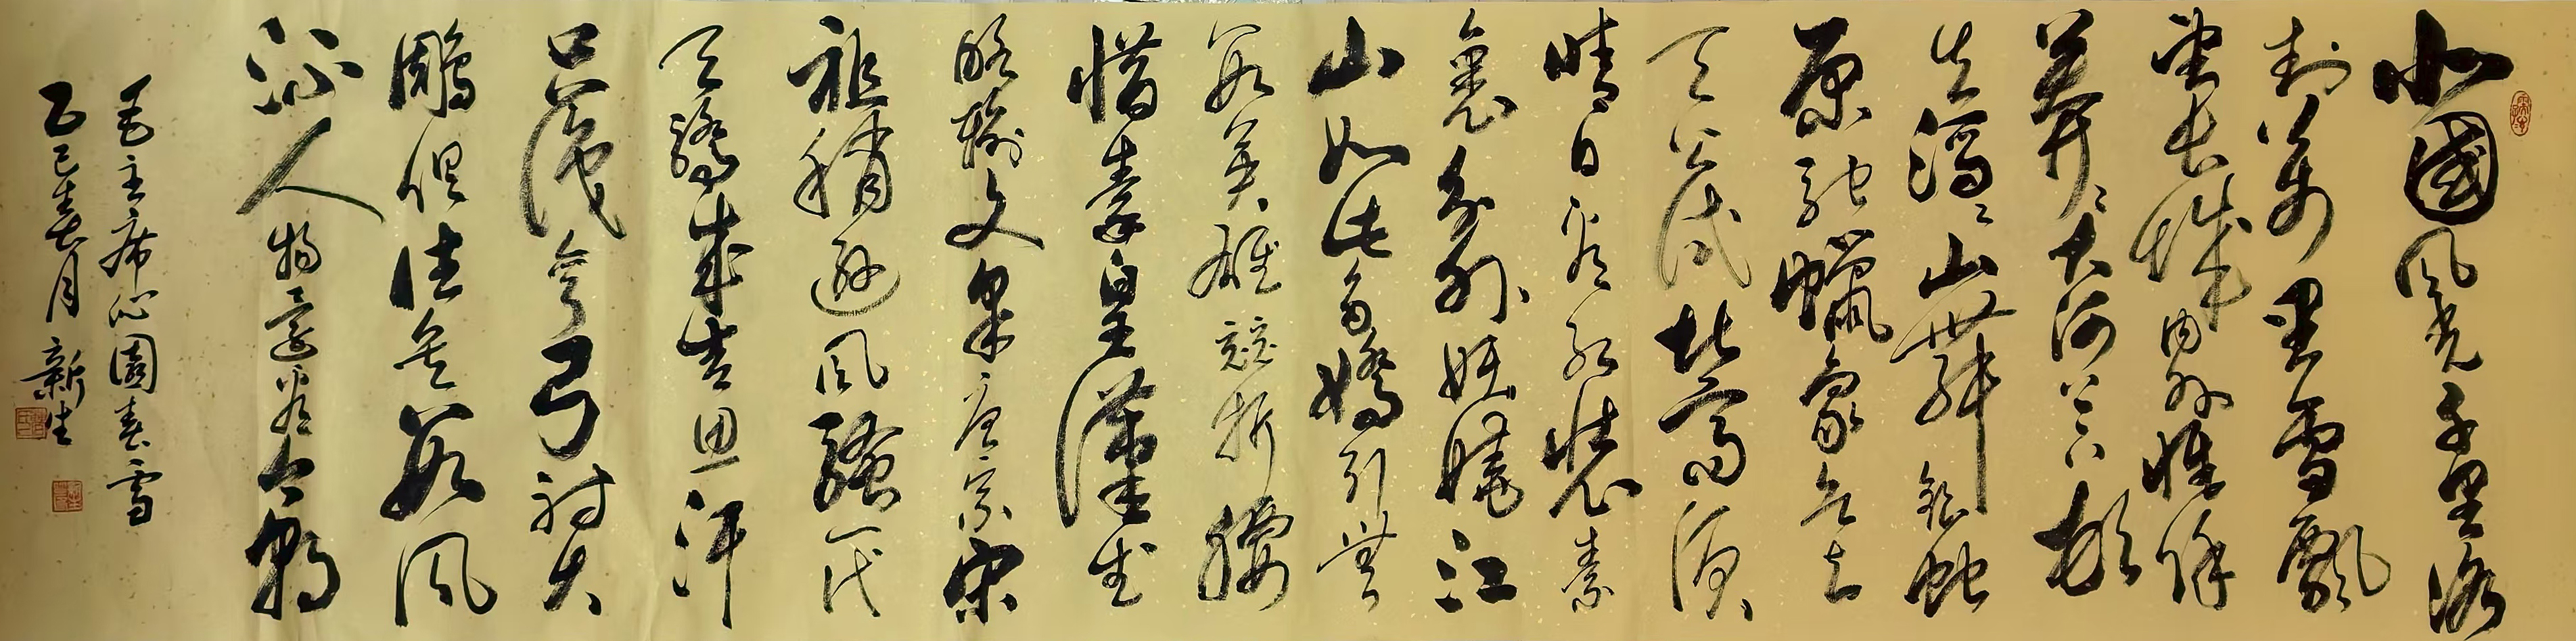 北國風光千里冰
封萬里雪飄
望長城内外惟餘
莽〻大河上下頓
失滔〻山舞銀蛇
原馳蠟象欲与
天公試比高須
晴日看紅裝素
裹分外妖嬈江
山如此多嬌引無
數英雄競折腰
惜秦皇漢武
略輸文采唐宗宋
祖稍遜風騷一代
天驕成吉思汗
只識彎弓射大
鵰俱往矣數風
流人物還看今朝
毛主席沁園春雪
乙巳春月 新生